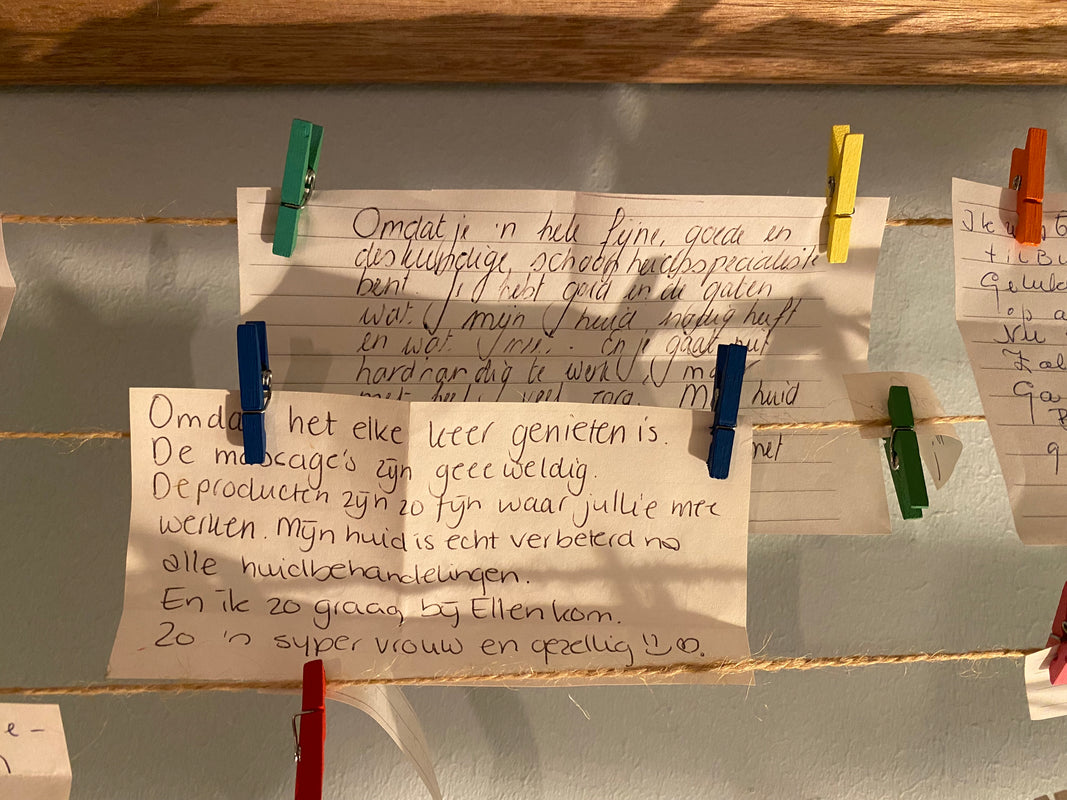 Omdat je 'n hele fijne, goede en
deskundige, schoonheidsspecialiste
bent. Jij hebt goed in de gaten
wat mijn huid nodig heeft
en wat niet. En je gaat niet
hardhandig te werk
met heel veel zorg. Mijn huid
net
Omdat het elke keer genieten is.
De massage's zijn geeeweldig.
De producten zijn zo fijn waar jullie mee
werken. Mijn huid is echt verbeterd na
alle huidbehandelingen.
En ik zo graag bij Ellen kom.
Zo 'n super vrouw en gezellig
Ik
Geluk
op a
Nu
Zal
Ga
g
e-